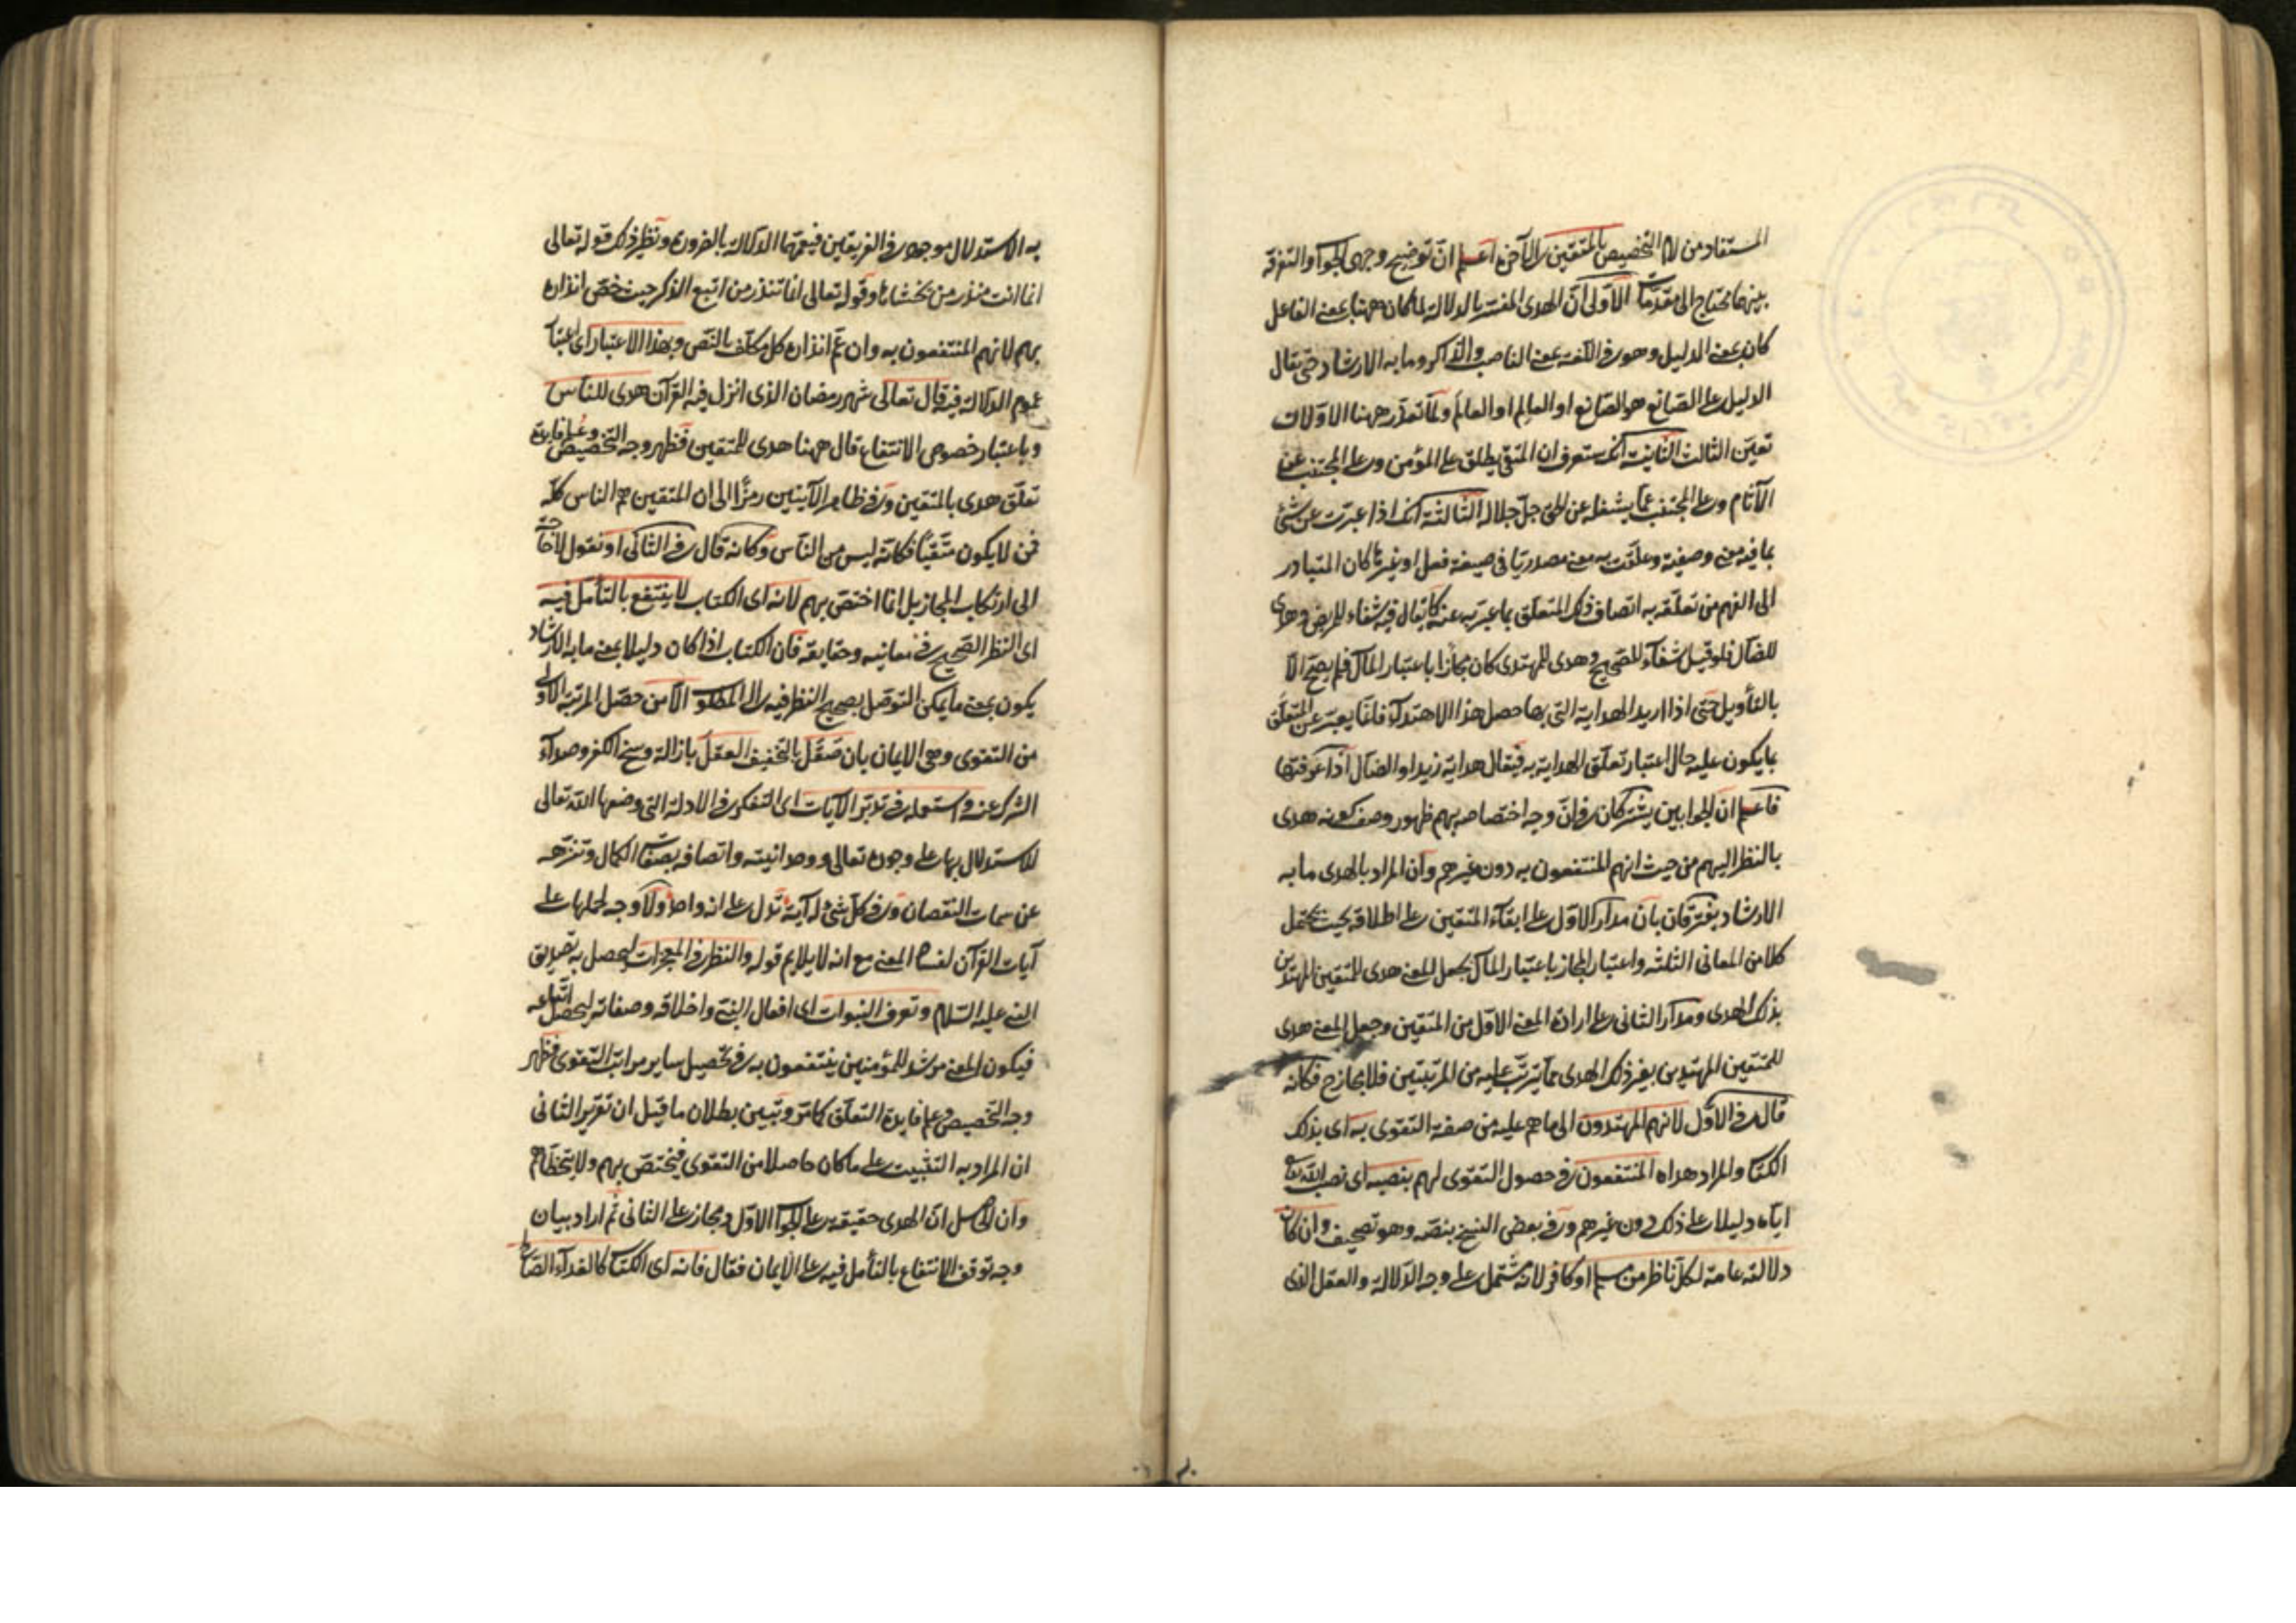 المستفاد من لام التخصيص بالمتقين الى الآخر اعلم انّ توضيح وجهى الجواب والتفرقة
بينهما يحتاج الى مقدّمات الاولى انّ الهدى المفسّر بالدلالة لما كان ههنا بمعنى الفاعل
كان بمعنى الدليل وهو فى اللغة بمعنى الناصب والذاكر وما به الارشاد حتى يقال
الدليل على الصّانع هو الصّانع او العالِم او العالَم ولمّا تعذّر ههنا الاوّلان
تعيّن الثالث الثانية انك ستعرف ان المتقى يطلق على المؤمن وعلى المجتنب عن
الآثام وعلى المجتنب عمّا يشغله عن الحق جلّ جلاله الثالثة انك اذا عبّرت عن شئ
بما فيه معنى وصفية وعلّقت به معنى مصدريّا فى صيغة فعل او غيرها كان المتبادر
الى الفهم من تعلّقه به اتصاف ذلك المتعلّق بما عبّر به عنه كما يقال فيه شفاء للمريض وهدى
للضالّ فلو قيل شفآء للصّحيح وهدى للمهتدى كان مجازا باعتبار المآل فلم يصحّ الّا
بالتأويل حتى اذا اريد الهداية التى بها حصل هذا الاهتدآء فانّما يعبّر عن المتعلّق
بما يكون عليه حال اعتبار تعلّق الهداية به فيقال هداية زيد او الضالّ اذا عرفتها
فاعلم ان الجوابين يشتركان فى انّ وجه اختصاصه بهم ظهور وصف كونه هدى
بالنظر اليهم من حيث انهم المنتفعون به دون غيرهم وان المراد بالهدى ما به
الارشاد ويفترقان بان مدار الاوّل على ابقآء المتقين على اطلاقه بحيث يحتمل
كلا من المعانى الثلثة واعتبار المجاز باعتبار المآل بجعل المعنى هدى للمتقين المهتدين
بذلك الهدى ومدار الثانى على ارادة المعنى الاوّل من المتقين وجعل المعنى هدى
للمتّقين المهتدين بغير ذلك الهدى ممّا يترتّب عليه من المرتبتين فلا مجاز ح فكانّه
قال فى الاوّل لانهم المهتدون الى ما هم عليه من صفة التقوى به اى بذلك
الكتاب والمراد هداه المنتفعون فى حصول التقوى لهم بنصبه اى نصب الله تعالى
ايّاه دليلا على ذلك دون غيرهم وفى بعض النسخ بنصّه وهو تصحيف وان كان
دلالته عامة لكلّ ناظر من مسلم او كافر لانه مشتمل على وجه الدّلالة والعقل الذى
به الاستدلال موجود فى الفريقين فيعمّهما الدلالة بالضرورة ونظير ذلك قوله تعالى
انما انت منذر من يخشاها وقوله تعالى انما تنذر من اتبع الذكر حيث خصّ انذاره
بهم لانهم المنتفعون به وان عمّ انذاره كل مكلّف بالنّص وبهذا الاعتبار اى اعتبار
عموم الدلالة فيه قال تعالى شهر رمضان الذى انزل فيه القرآن هدى للناس
وباعتبار خصوص الانتفاع قال ههنا هدى للمتقين فظهر وجه التخصيص وعلم فايدة
تعلّق هدى بالمتقين وفى ظاهر الآيتين رمزًا الى ان المتقين هم الناس كلّه
فمن لا يكون متّقيًا فكانّه ليس من النّاس وكانه قال فى الثانى او نقول لا حاجة
الى ارتكاب المجاز بل انما اختصّ بهم لانه اى الكتاب لا ينتفع بالتأمل فيه
اى النظر الصّحيح فى معانيه وحقايقه فان الكتاب اذا كان دليلا بمعنى ما به الارشاد
يكون بمعنى ما يمكن التوصّل بصحيح النظر فيه الى المطلوب الّا من حصّل المرتبة الاولى
من التقوى وهى الايمان بان صَقَل بالتخفيف العقلَ بازالة وسخ الكفر وصدآء
الشرك عنه واستعمله فى تدبّر الآيات اى التفكر فى الادلة التى وضعها الله تعالى
للاستدلال بها على وجوده تعالى ووحدانيته واتصافه بصفات الكمال وتنزّهه
عن سمات النقصان وفى كلّ شئ له آية تدل على انه واحد ولا وجه لحملها على
آيات القرآن لفساد المعنى مع انه لا يلايم قوله والنظر فى المعجزات ليحصل به تصديق
النبى عليه السّلام وتعرف النبوات اى افعال النبى واخلاقه وصفاته ليحصل اتباعه
فيكون المعنى مرشد للمؤمنين ينتفعون به فى تحصيل ساير مراتب التقوى فظهر
وجه التّخصيص وعلم فايدة التعلّق كما مرّ وتبيّن بطلان ما قيل ان تقرير الثانى
ان المراد به التثبيت على ما كان حاصلا من التقوى فيختصّ بهم ولا يتخطّاهم
وان الحاصل انّ الهدى حقيقة على الجواب الاوّل ومجاز على الثانى ثم اراد بيان
وجه توقف الانتفاع بالتأمل فيه على الايمان فقال فانه اى الكتاب كالغذآء الصّالح